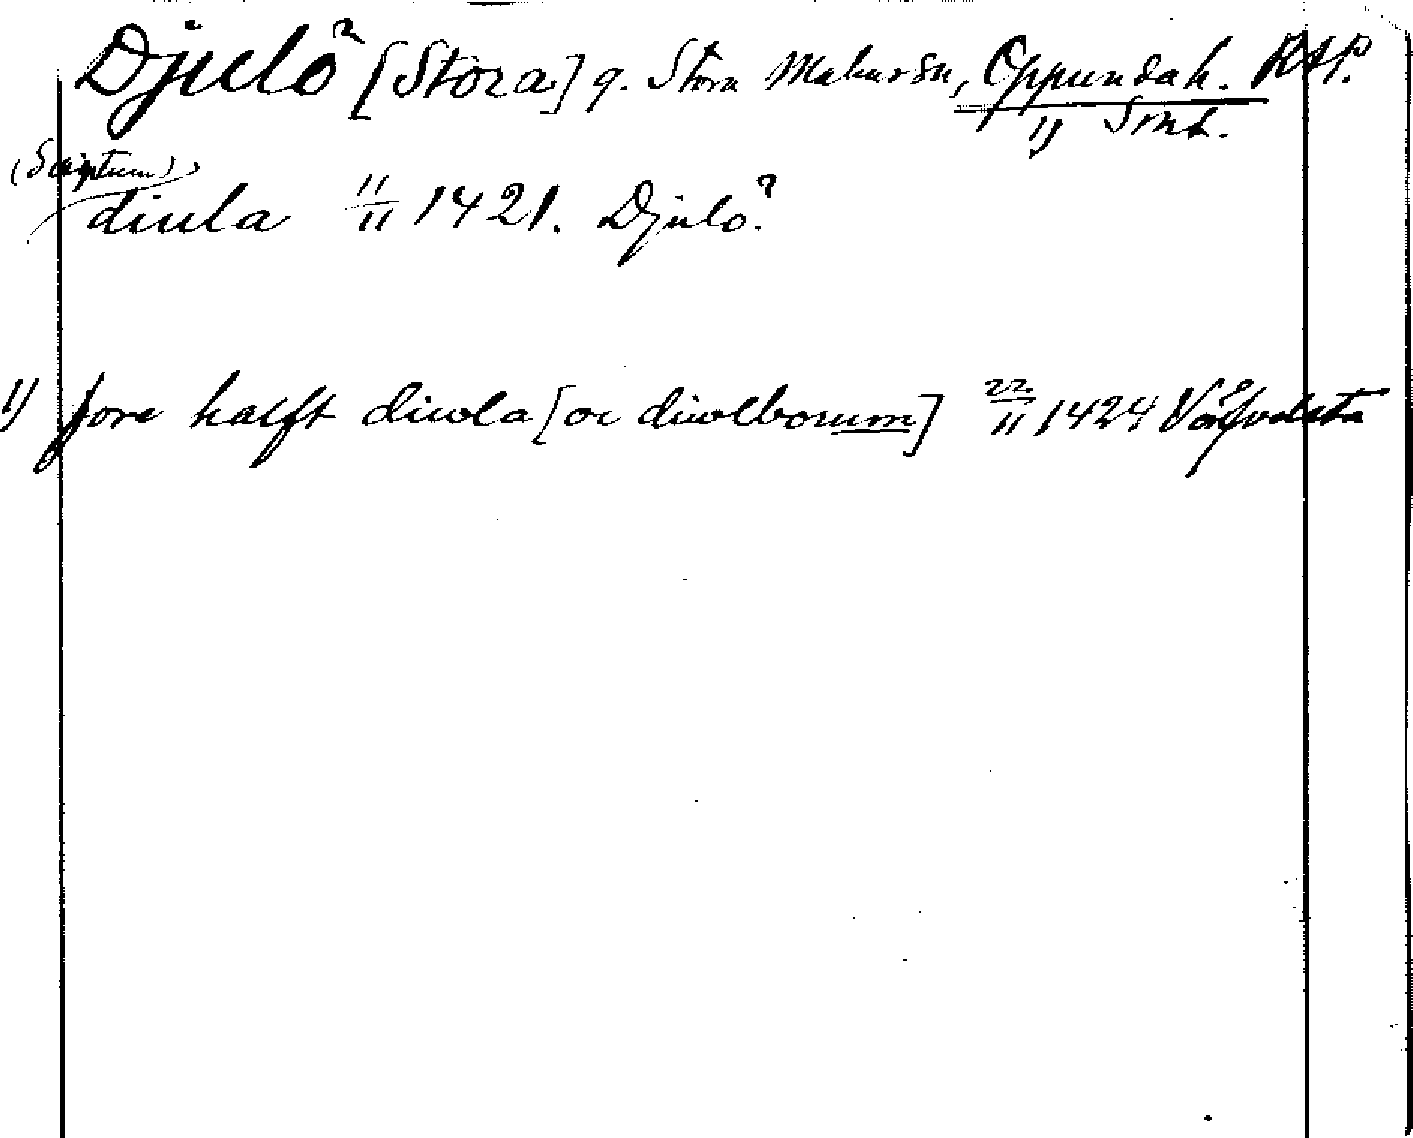 Djulö? [Stora] g. Stora Malms sn, Oppunda h. RAP.
1) Sml.
(Scriptum)
diula 11/11 1421. Djulo?
1) fore halft diwla [oc diwlborum] 22/11 1424